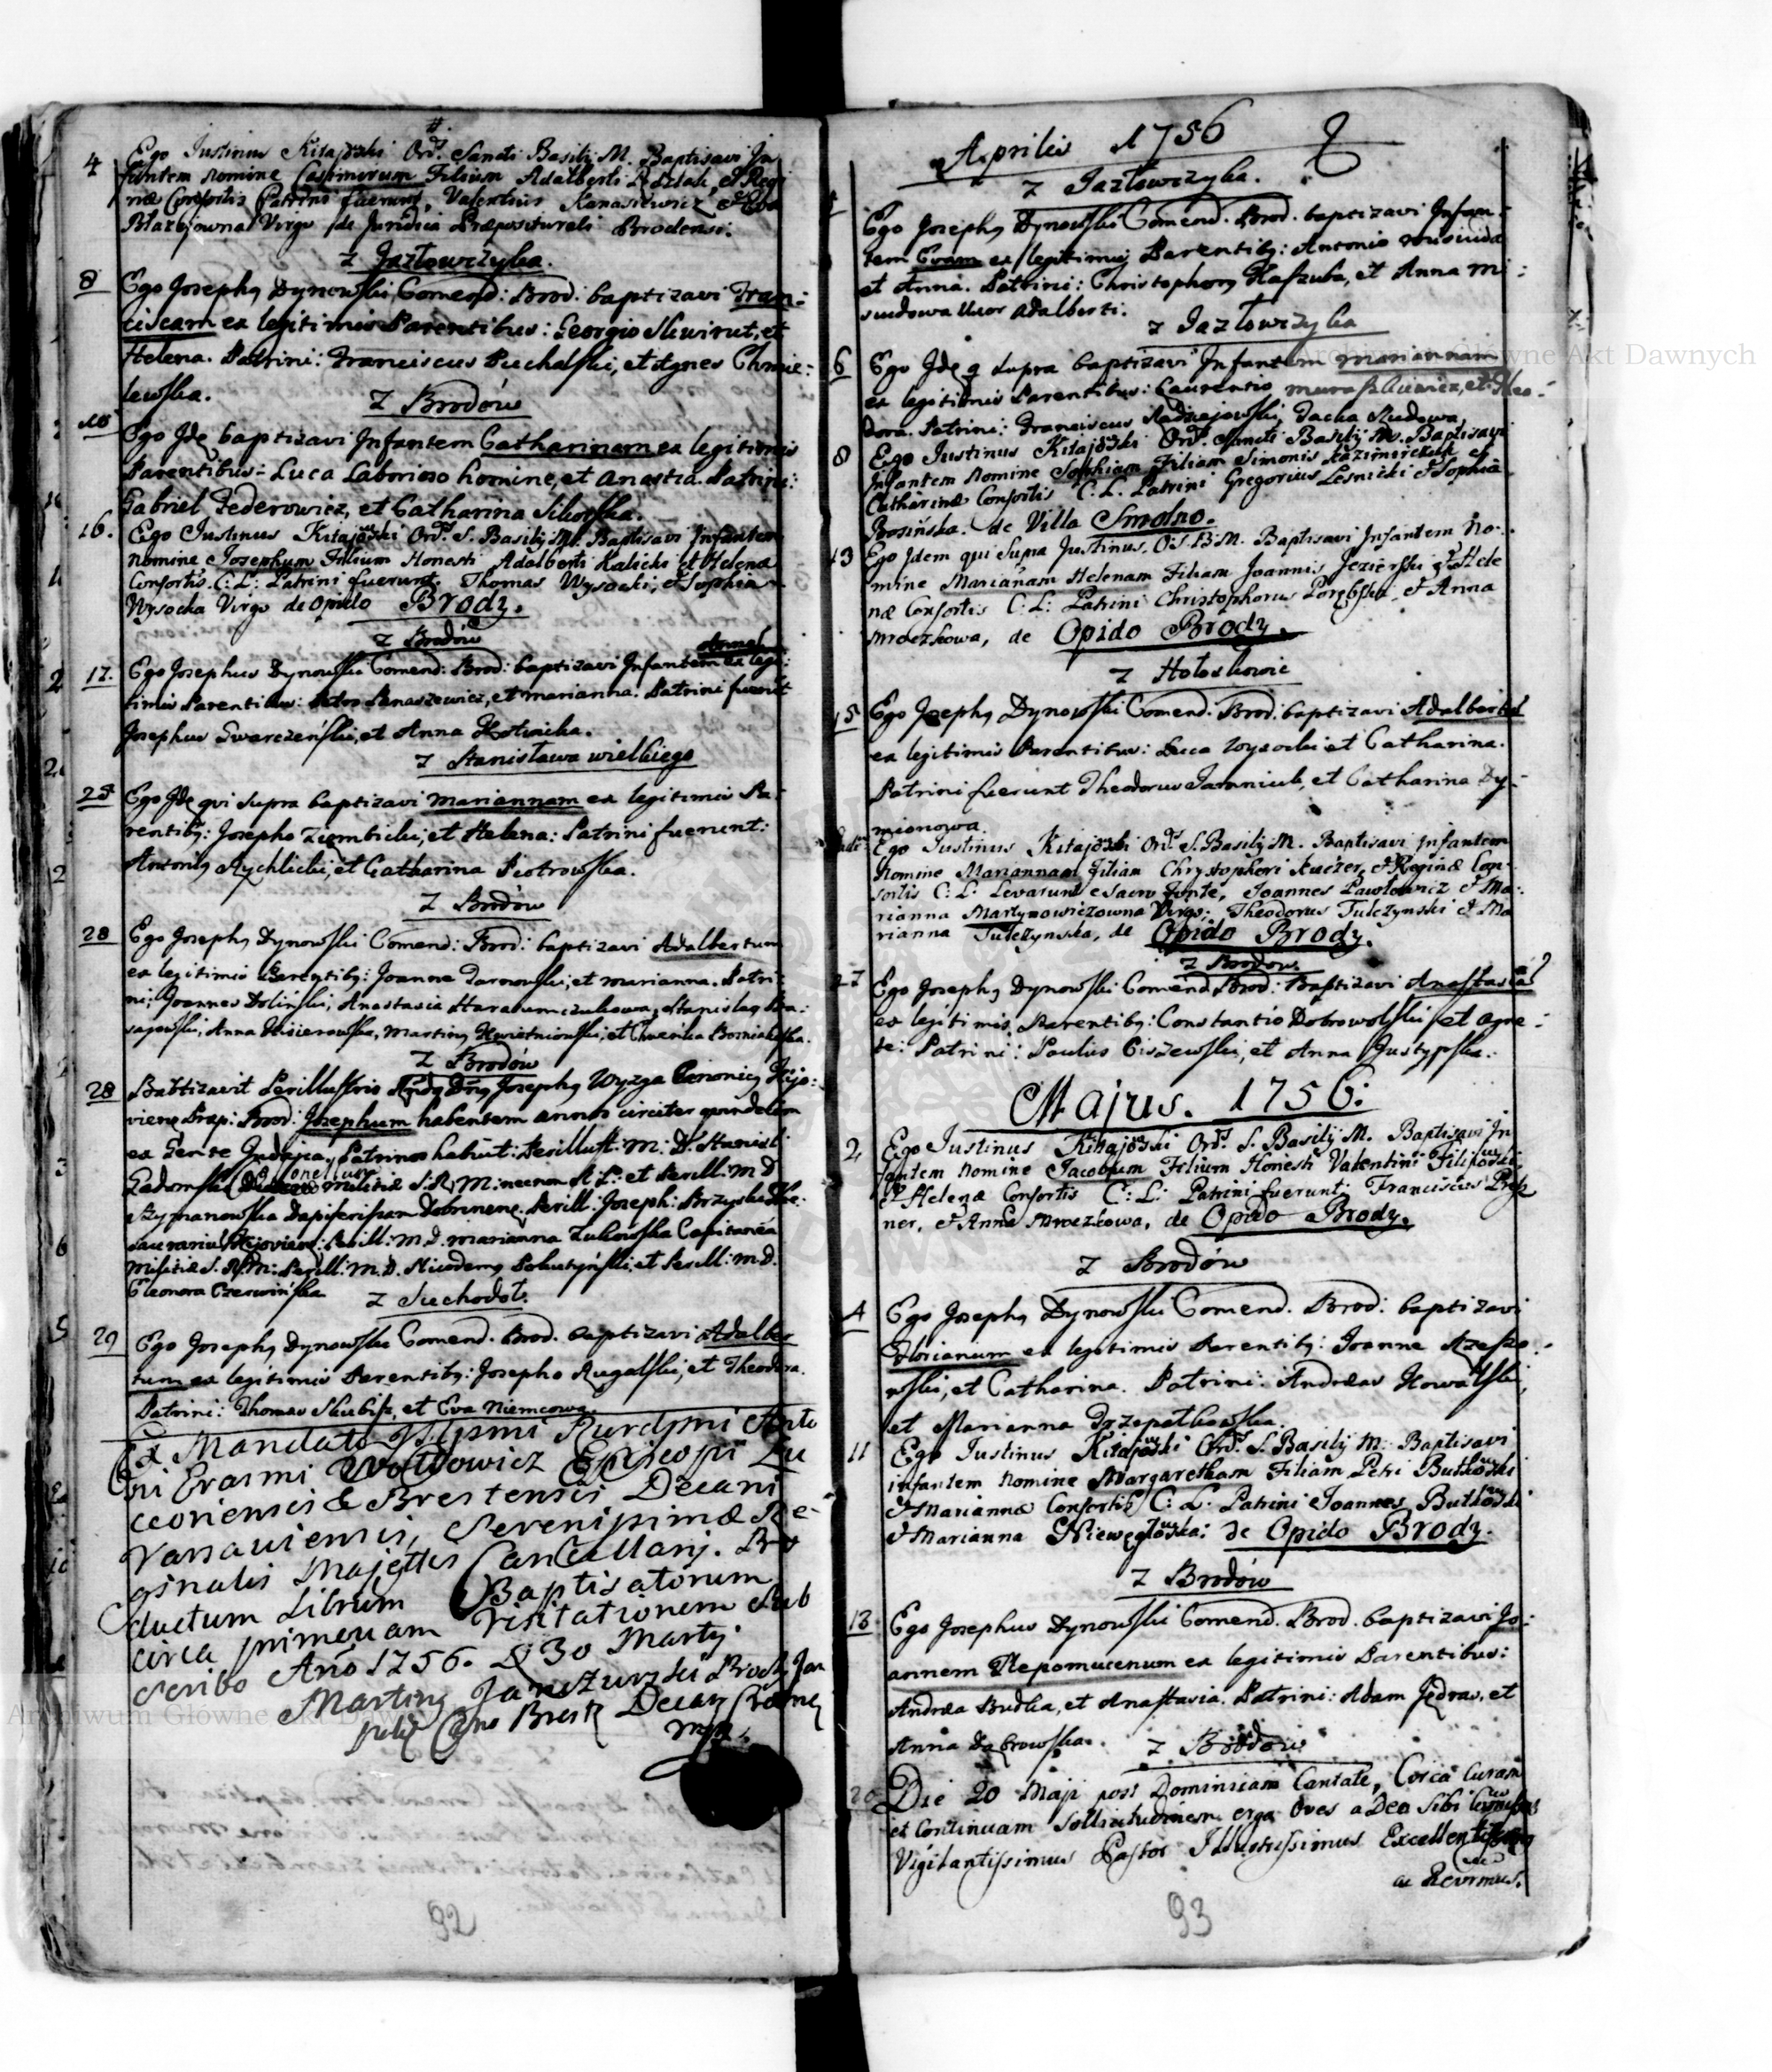 4 Ego Justinus Kitajowski Ord. Sancti Basilij M. Baptisavi In
fantem Nomine Casimirum Filium Adalberti et Regi
næ Consortis Patrini fuerunt, Valentius Kanasiewicz et Eva
Błażejowna Virgo de Juridica Præpositurali Brodensi.
z Jazłowczyka.
8 Ego Josephq Dynowski Comend: Brod: baptizavi Fran-
ciscam ex legitimis Parentibus: Georgio Skwirut, et
Helena. Patrini: Franciscus Puchalski, et Agnes Chmie-
lewska.
z Brodów
10 Ego Jde baptizavi Infantem Catharinam ex legitimis
Parentibus: Luca Laborioso homine, et Anastia. Patrini:
Gabriel Federowicz, et Catharina Sikorska.
16. Ego Justinus Kitajowski Ord. S. Basilij M. Baptisavi Infantem
Nomine Josephum Filium Honesti Adalberti Kalicki et Helena
Consortis. C: L: Patrini fuerunt. Thomas Wysocki, et Sophia
Wysocka Virgo de Opido Brody.
z Brodów
17. Ego Josephus Dynowski Comend: Brod: baptizavi Infantem ex legi-
timis Parentibus: Petro Panaszewicz, et Marianna. Patrini fuerut
Josephus Swarczeński, et Anna Hotnicka.
z Stanisława wielkiego
25 Ego Jde qui supra baptizavi Mariannam ex legitimis Pa
rentibq: Josepho Ziembicki, et Helena: Patrini fuerunt:
Antonius Rychlicki, et Catharina Piotrowska.
z Brodów
28 Ego Josephq Dynowski Comend: Brod: baptizavi Adalbertum
ex legitimis Parentibq: Joanne Darnowski, et Marianna. Patri-
ni: Joannes Doliński, Anastasia Stanislaq
Anna Martinq et
z Brodów
28 Babtizavit Perillustris Rndq Dnq Josephq Wyzga Canonicq Kijo-
vienq Præp: Brod: Josephum habentem annos circiter quindecim
ex Gente Judaica, Patrinos habuit: Perillust: M: D. Stanisl:
Gadomski Militiæ S. R. M: necnon R. P.: et Perill: M D
Szymanowska Dapiferissam Dobrinenq. Perill: Joseph: Brzyski The-
saurarium Kijovien: Perill: M. D. Marianna Zukowska Capitanea
Militiæ S. R. M: Perill: M. D. Nicodemq Pokutyński, et Perill: M. D.
Eleonora Czerwińska
z Suchodoł.
29 Ego Josephq Dynowski Comend. Brod. baptizavi Adalber
tum ex legitimis Parentibq: Josepho Rugalski, et Theodora.
Patrini: Thomas Skubisz, et Eva Niemcowa.
Ex Mandato Illsmi Rurdsmi Anto
ni Erasmi Wołłowicz Episcopi Lu
ceoriensis & Brestensis Decani
Varsaviensis, Serenissimæ Re-
ginalis Majettis Cancellarij. Pro
ductum Librum Baptisatorum
circa primevam Visitationem Sub
scribo Año 1756. D 30 Martij.
Martinq Janczurski
Brest Decan
mpp.
92
Aprilis 1756
z Jazłowczyka.
Ego Josephq Dynowski Comend. Brod. baptizavi Infan-
tem Evam ex legitimis Parentibq: Antonio
et Anna. Patrini: Christophorq Kaszuba, et Anna Mi-
Uxor Adalberti.
z Jazłowczyka
6 Ego Jde q supra baptizavi Infantem Mariannam
ex legitimis Parentibus: Laurentio et Theo-
dora. Patrini: Franciscus Radziejowski, Dacka Rudowa
8 Ego Justinus Kitajowski Ord. Sancti Basilij M. Baptisavi
Infantem Nomine Sophiam Filiam Simonis Kazimirczuk et
Catharinæ Consortis C. L. Patrini Gregorius Lesnicki & Sophia
Brosińska. de Villa Smolno.
13 Ego Jdem qui Supra Justinus. O. S. B. M. Baptisavi Infantem No-
mine Mariañam Helenam Filiam Joannis Jezierski & Hele
næ Consortis C: L: Patrini Christophorus Porębski, & Anna
Mroczkowa, de Opido Brody.
z Hołoskowic
15 Ego Josephq Dynowski Comend. Brod. baptizavi Adalbertu
ex legitimis Parentibus: Luca Wysocki et Catharina.
Patrini fuerunt Theodorus Jaroniuk, et Catharina Dy-
mionowa.
Ego Justinus Kitajowski Ord. S. Basilij M. Baptisavi Infantem
Nomine Mariannam Filiam Chrystopheri Kuczer, & Reginæ Con-
sortis C: L: Levarunt e sacro fonte, Joannes Pawłowicz & Ma-
rianna Martynowiczowna Virgo; Theodorus Tulczynski & Ma
rianna Tulczynska, de Opido Brody.
z Brodow.
27 Ego Josephq Dynowski Comend. Brod: Baptizavi Anastasia
ex legitimis Parentibq: Constantio Dobrowolski et Agne-
te: Patrini: Paulus Ciszewski, et Anna Justypska.
Majus. 1756:
2 Ego Justinus Kitajowski Ord. S. Basilij M. Baptisavi In
fantem Nomine Jacobum Filium Honesti Valentini Filipowski
& Helenæ Consortis C: L: Patrini fuerunt: Franciscus Pres
ner, & Anna Mroczkowa, de Opido Brody.
z Brodów
4 Ego Josephq Dynowski Comend. Brod: baptizavi
Florianum ex legitimis Parentibq: Joanne Rzeszo-
wski, et Catharina. Patrini: Andreas Nowalski,
et Marianna Drzepatkowska.
11 Ego Justinus Kitajowski Ord. S. Basilij M. Baptisavi
infantem Nomine Margaretham Filiam Petri Butkowski
& Mariannæ Consortis C: L: Patrini Joannes Butkowski
& Marianna Niewęgłowska; de Opido Brody.
z Brodów
13 Ego Josephus Dynowski Comend. Brod. baptizavi Jo-
annem Nepomucenum ex legitimis Parentibus:
Andrea Budka, et Anastasia. Patrini: Adam Jędras, et
Anna Dąbrowska.
z Brodow
20 Die 20 Maji post Dominicam Cantate, Circa Curam
et Continuam Sollicitudinem erga Oves a Deo Sibi
Vigilantissimus Pastor Illustrissimus Excellentissimq
ac Revrmus.
93
Archiwum Główne Akt Dawnych